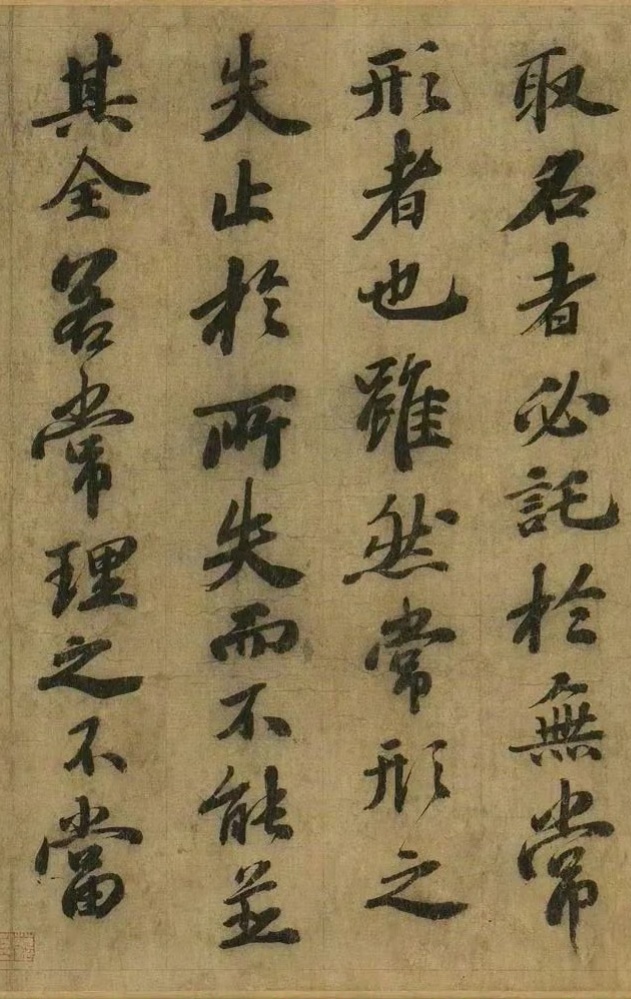 取名者必託於無常
形者也雖然常形之
失止於所失而不能並
其全若常理之不當